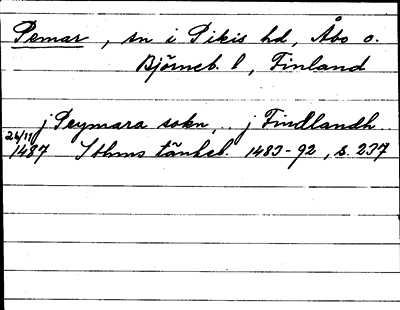 Pemar, sn i Pikis hd, Åbo o.
Björneb. l, Finland
j Peymara sokn, .. j Findlandh
26/11
1487 Sthms tänkeb. 1483-92, s. 237